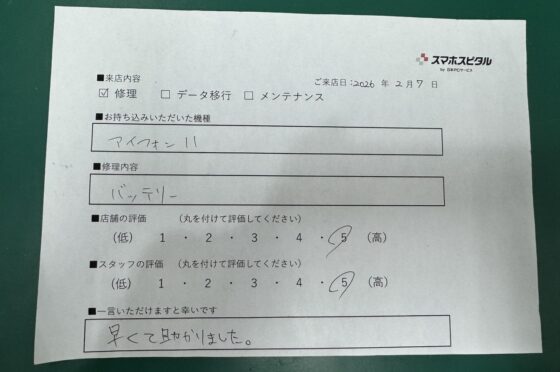 スマホスピタル
by 日本PCサービス
■来店内容
ご来店日:2026 年 2月 7 日
☑ 修理 □ データ移行 □ メンテナンス
■お持ち込みいただいた機種
アイフォン 11
■修理内容
バッテリー
■店舗の評価 (丸を付けて評価してください)
(低) 1 ・ 2 ・ 3 ・ 4 ・ 5 (高)
■スタッフの評価 (丸を付けて評価してください)
(低) 1 ・ 2 ・ 3 ・ 4 ・ 5 (高)
■一言いただけますと幸いです
早くて助かりました。